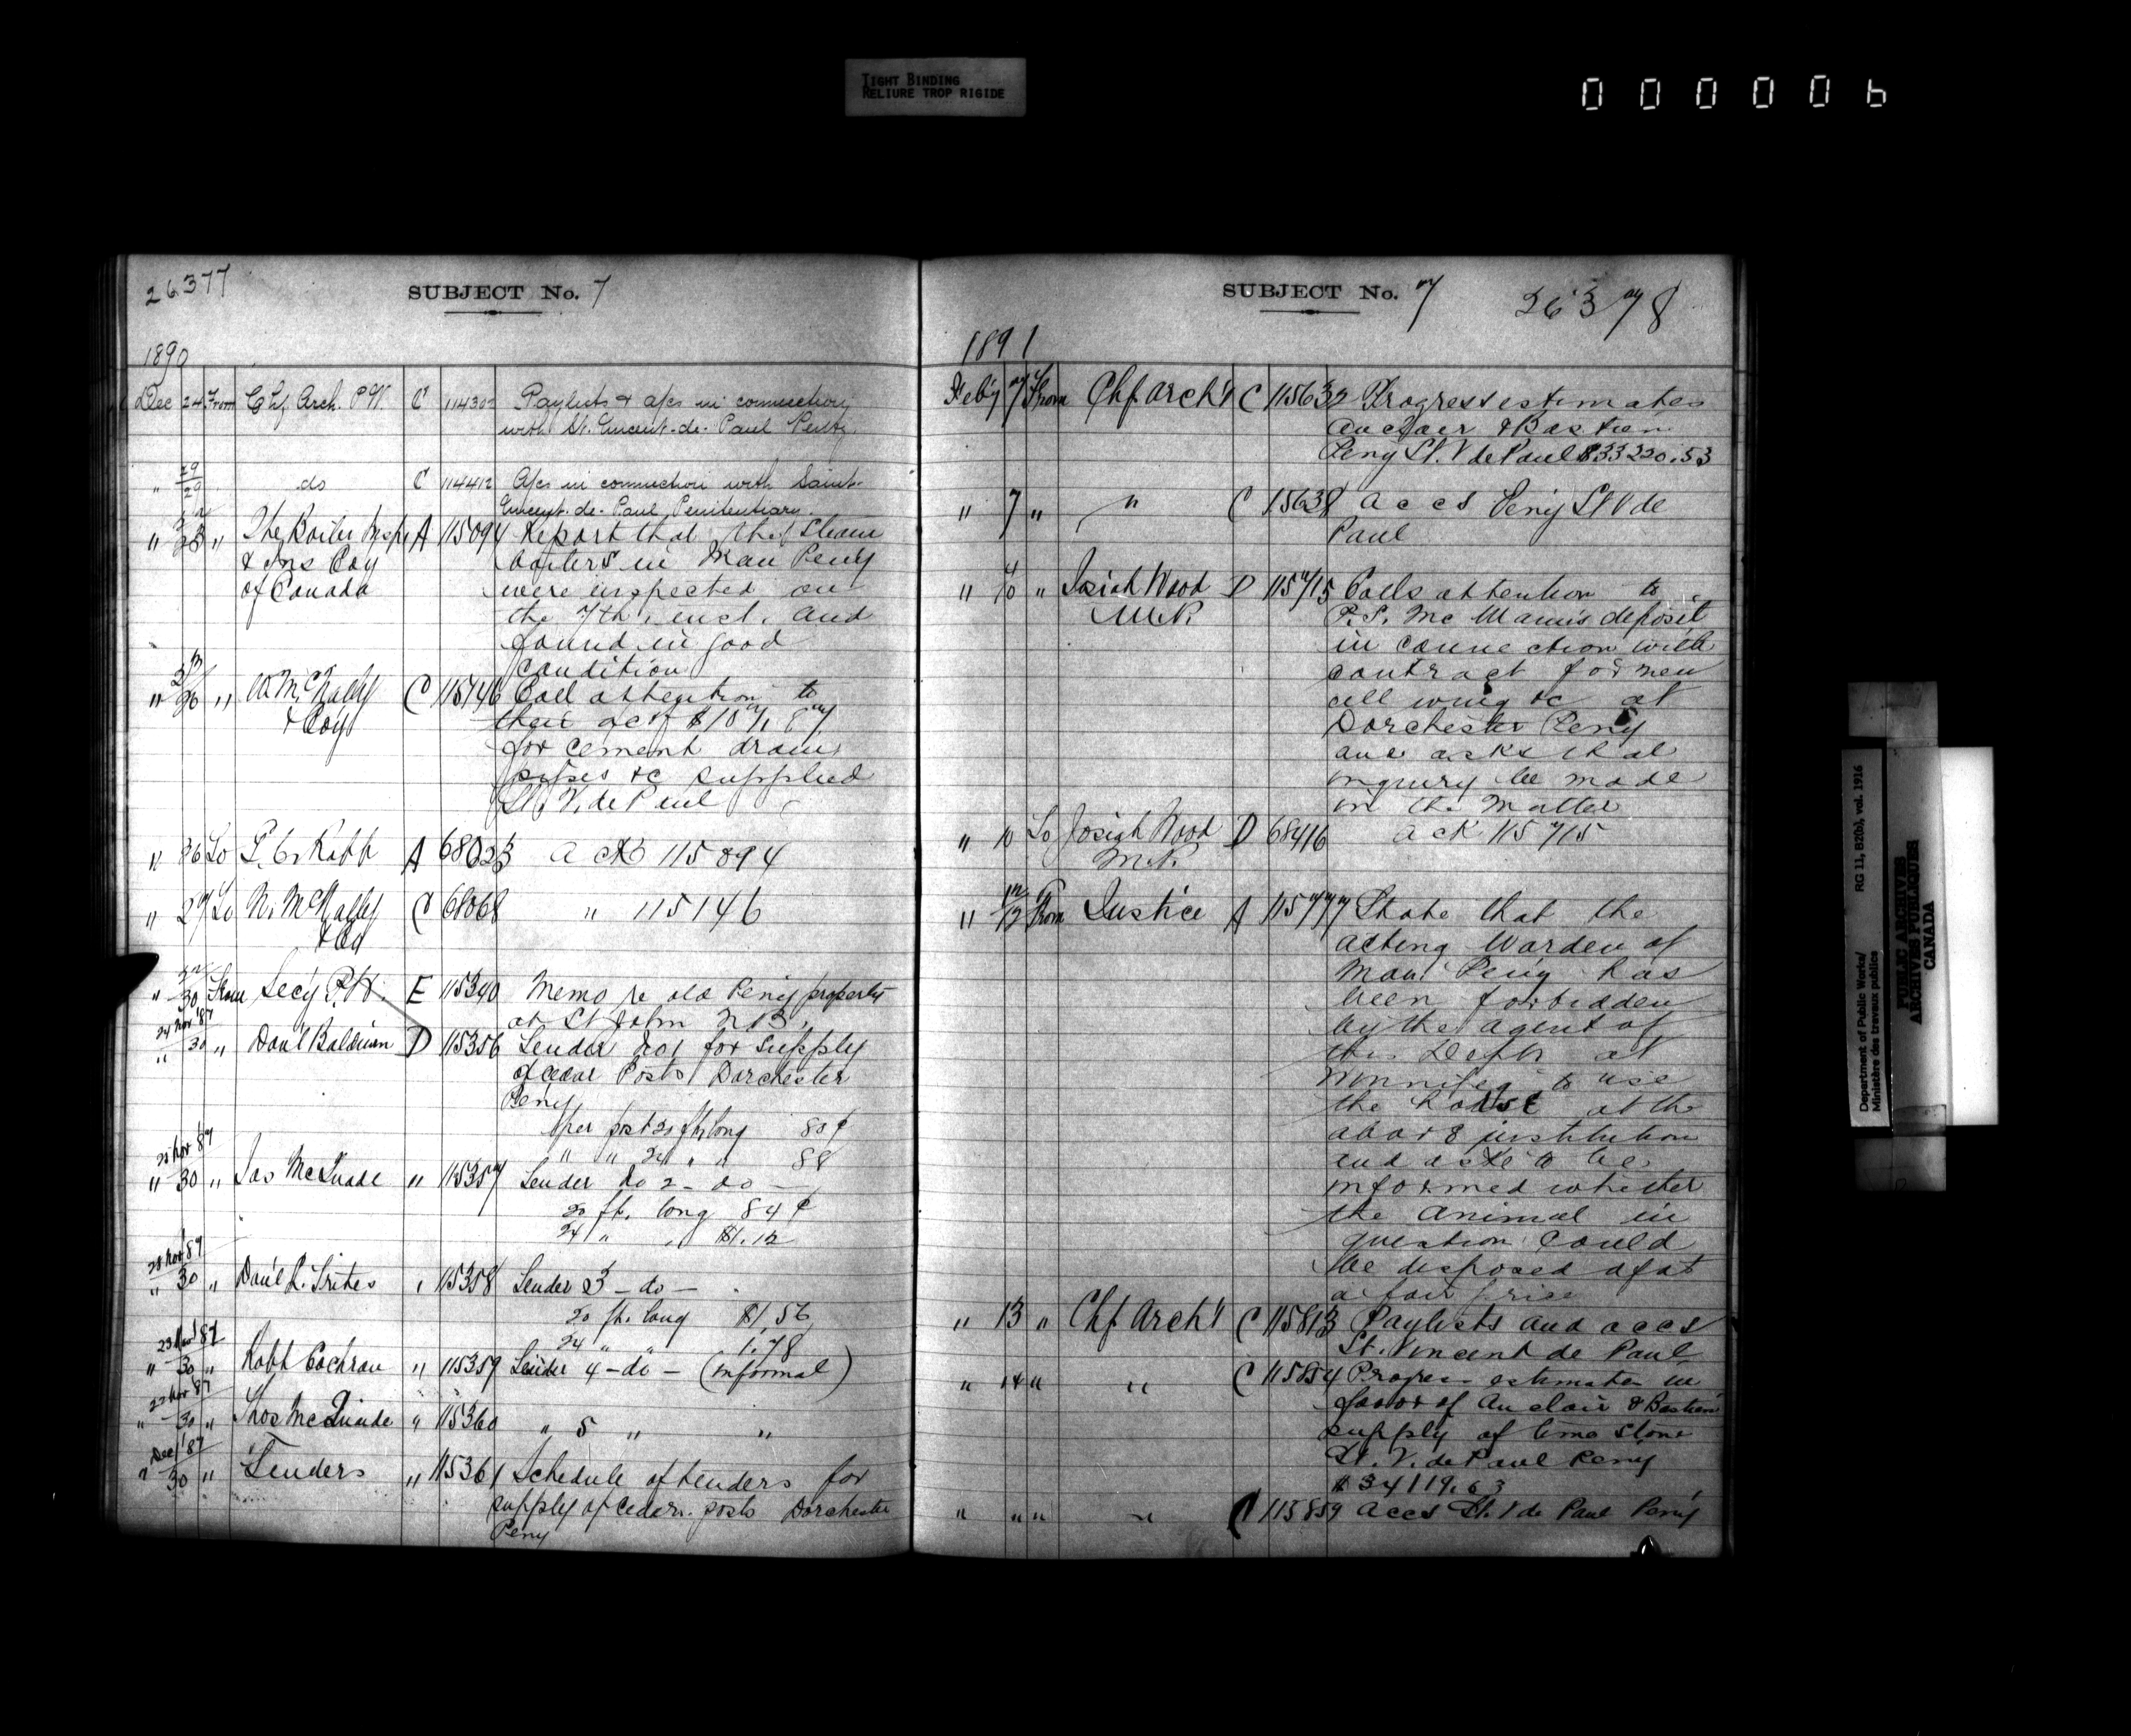 TIGHT BINDING
RELIURE TROP RIGIDE
000006
26377
SUBJECT No. 7
1890
Dec 24 From Chf Arch. P.W. C 114302 Paylists & a/cs in connection
with St. Vincent-de-Paul Penty
" 29 do C 114412 A/cs in connection with Saint-
Vincent-de-Paul Penitentiary.
" 23 " The Boiler Insp A 115094 Report that the steam
& Ins Coy boilers in Man Peny
of Canada were inspected on
the 7th inst. and
found in good
condition
" 26 " W McNally C 115146 Call attention to
& Coy their acct
for cement drain
pipes &c supplied
St. V. de Paul
" 26 To A 68023 ack 115094
" 27 To W. McNally C 68068 " 115146
& Co
" 30 From Secy P.W. E 115340 Memo re old Peny property
at St John N B.
24 Nov '87
" 30 " Danl Baldwin D 115356 Tender No 1 for supply
of cedar Posts Dorchester
Peny
per post 20 ft long 80 ¢
" " 24 " " 88
28 Nov 87
" 30 " Jas McQuade " 115357 Tender No 2 - do -
20 ft. long 84 ¢
24 " " $1.12
28 Nov 87
" 30 " Danl L. Trites " 115358 Tender 3 - do -
20 ft. long $1.56
24 " " 1.78
23 Nov 87
" 30 " Robt Cochran " 115359 Tender 4 - do - (informal)
22 Nov 87
" 30 " Thos McQuade " 115360 " 5 " "
Dec 1 '87
" 30 " Tenders " 115361 Schedule of tenders for
supply of cedar posts Dorchester
Peny
SUBJECT No. 7 26378
1891
Feby 7 From Chf Archt C 115632 Progress estimates
Auclair & Bastien
Peny St. V de Paul $33220.53
" 7 " " C 15638 accs Peny St V de
Paul
" 10 " Josiah Wood D 115715 Calls attention to
M.P. P. S. McManus deposit
in connection with
contract for new
cell wing &c at
Dorchester Peny
and asks that
inquiry be made
in the matter
" 10 To Josiah Wood D 68416 ack 115715
M.P.
" 12 From Justice A 115777 State that the
acting Warden of
Man. Peny has
been forbidden
by the agent of
this Dept at
Winnipeg to use
the horse at the
above institution
and asks to be
informed whether
the animal in
question could
be disposed of at
a fair price
" 13 " Chf Archt C 115813 Paylists and accs
St. Vincent de Paul
" 14 " " C 115854 Progress estimates in
favor of Auclair & Bastien
supply of lime stone
St. V. de Paul Peny
$34119.63
" " " " C 115859 Accs St. V de Paul Peny
Department of Public Works/ RG 11, B2(b), vol. 1916
Ministère des travaux publics
PUBLIC ARCHIVES
ARCHIVES PUBLIQUES
CANADA